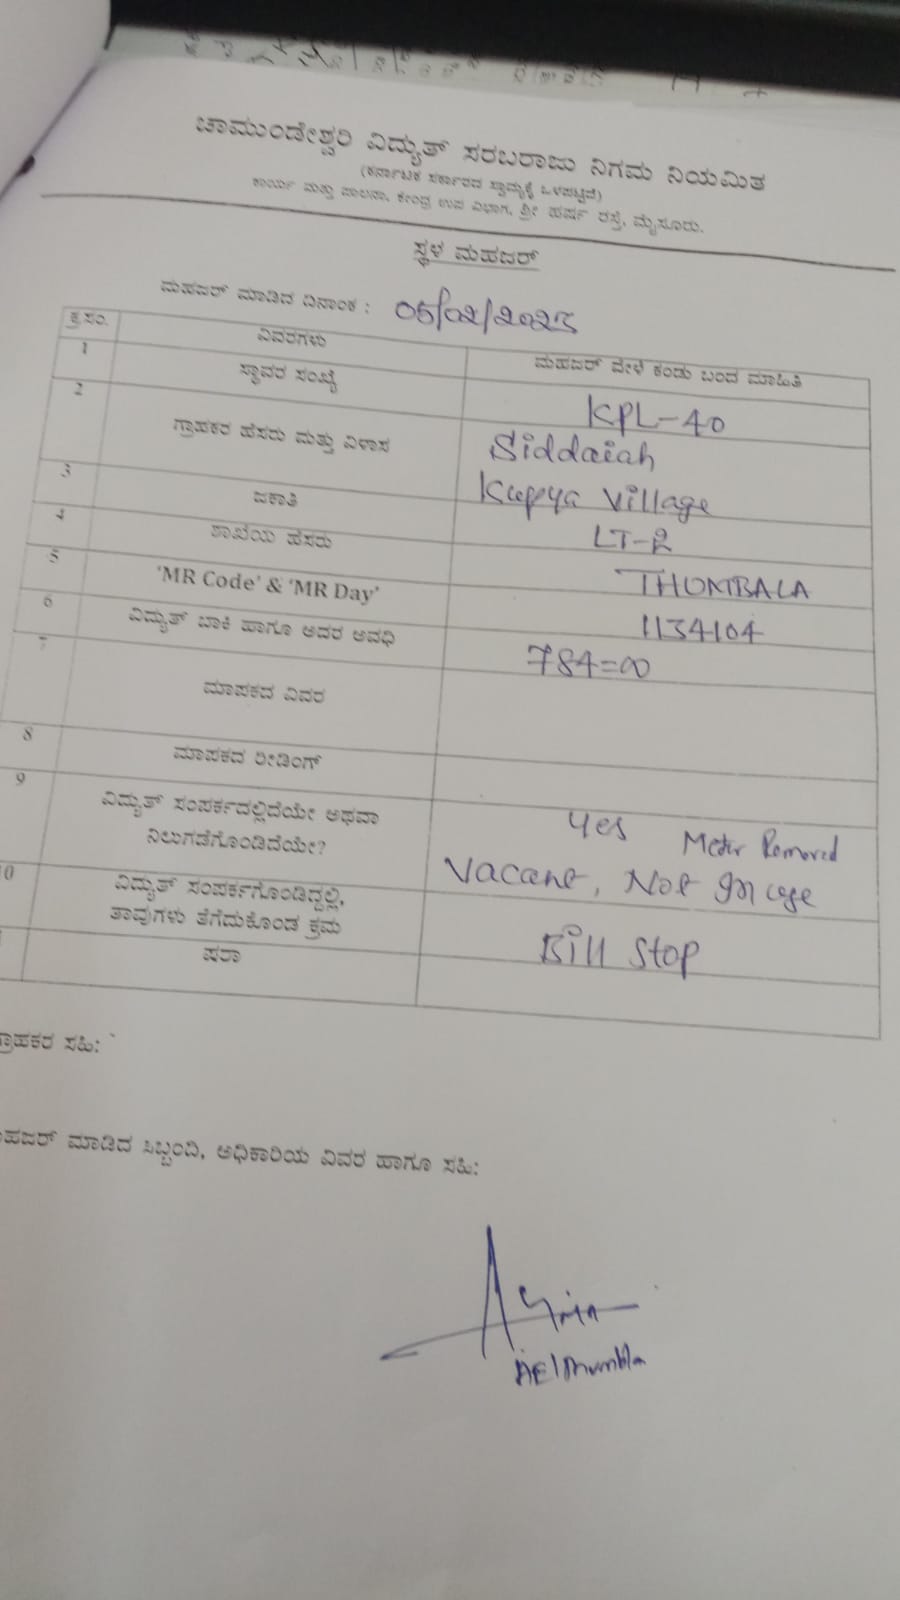 ಚಾಮುಂಡೇಶ್ವರಿ ವಿದ್ಯುತ್ ಸರಬರಾಜು ನಿಗಮ ನಿಯಮಿತ
(ಕರ್ನಾಟಕ ಸರ್ಕಾರದ ಸ್ವಾಮ್ಯಕ್ಕೆ ಒಳಪಟ್ಟಿದೆ)
ಕಾರ್ಯ ಮತ್ತು ಪಾಲನಾ, ಕೇಂದ್ರ ಉಪ ವಿಭಾಗ, ಶ್ರೀ ಹರ್ಷ ರಸ್ತೆ, ಮೈಸೂರು.
ಸ್ಥಳ ಮಹಜರ್
ಮಹಜರ್ ಮಾಡಿದ ದಿನಾಂಕ : 05/02/2023
ಕ್ರ.ಸಂ. ವಿವರಗಳು ಮಹಜರ್ ವೇಳೆ ಕಂಡು ಬಂದ ಮಾಹಿತಿ
1 ಸ್ಥಾವರ ಸಂಖ್ಯೆ KPL-40
2 ಗ್ರಾಹಕರ ಹೆಸರು ಮತ್ತು ವಿಳಾಸ Siddaiah
Kuppya Village
3 ಜಕಾತಿ LT-2
4 ಶಾಖೆಯ ಹೆಸರು THUMBALA
5 'MR Code' & 'MR Day' 1134104
6 ವಿದ್ಯುತ್ ಬಾಕಿ ಹಾಗೂ ಅದರ ಅವಧಿ 784=00
7 ಮಾಪಕದ ವಿವರ
8 ಮಾಪಕದ ರೀಡಿಂಗ್
9 ವಿದ್ಯುತ್ ಸಂಪರ್ಕದಲ್ಲಿದೆಯೇ ಅಥವಾ
ನಿಲುಗಡೆಗೊಂಡಿದೆಯೇ? Yes Meter Removed
Vacant, Not In use
10 ವಿದ್ಯುತ್ ಸಂಪರ್ಕಗೊಂಡಿದ್ದಲ್ಲಿ,
ತಾವುಗಳು ತೆಗೆದುಕೊಂಡ ಕ್ರಮ Bill Stop
ಷರಾ
ಗ್ರಾಹಕರ ಸಹಿ:
ಮಹಜರ್ ಮಾಡಿದ ಸಿಬ್ಬಂದಿ, ಅಧಿಕಾರಿಯ ವಿವರ ಹಾಗೂ ಸಹಿ: